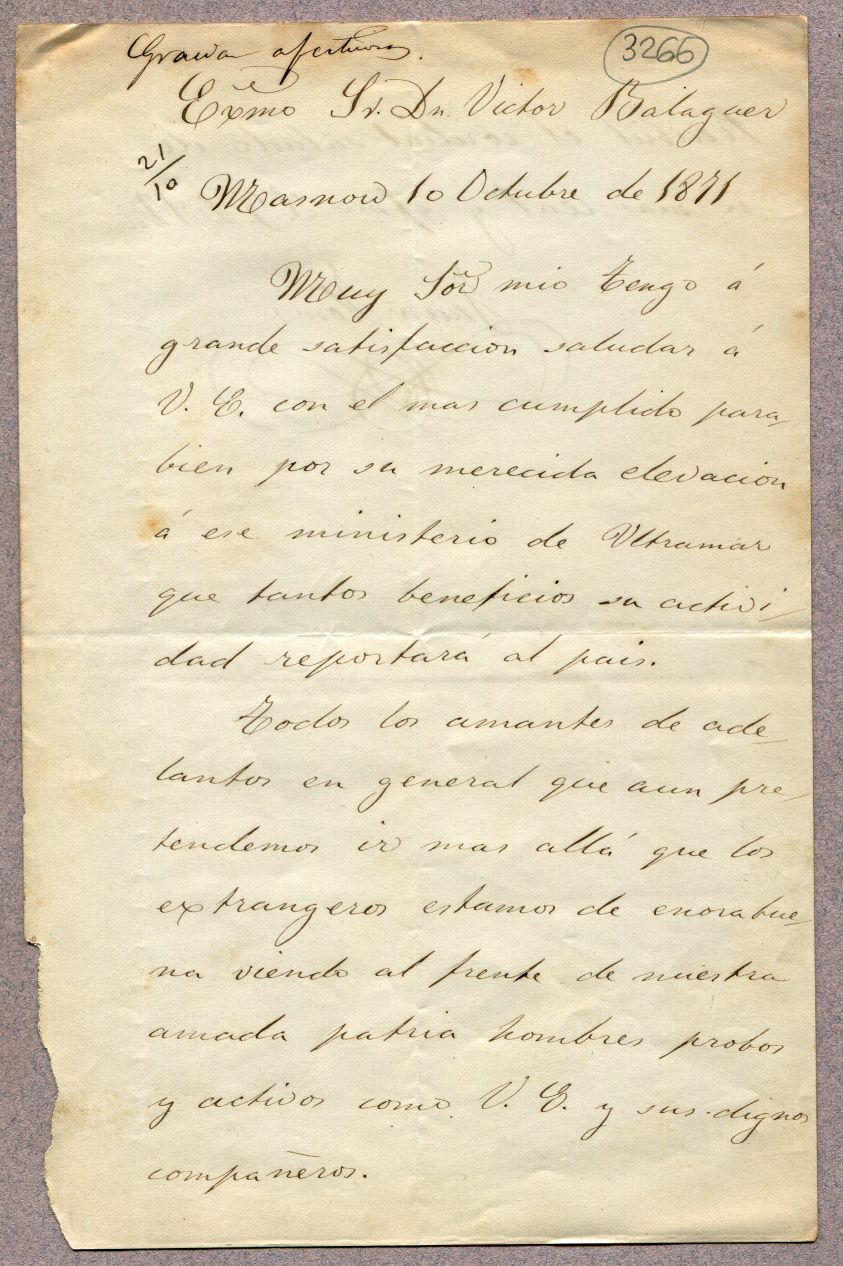 Gracias afectuosas.
3266
Exmo Sr. Dn. Victor Balaguer
21/10
Masnou 10 Octubre de 1871
Muy Sor mio tengo á
grande satisfaccion saludar á
V. E. con el mas cumplido para-
bien por su merecida elevacion
á ese ministerio de Ultramar
que tantos beneficios su activi-
dad reportará al pais.
Todos los amantes de ade-
lantos en general que aun pre-
tendemos ir mas allá que los
extrangeros estamos de enorabue-
na viendo al frente de nuestra
amada patria hombres probos
y activos como V. E. y sus dignos
compañeros.